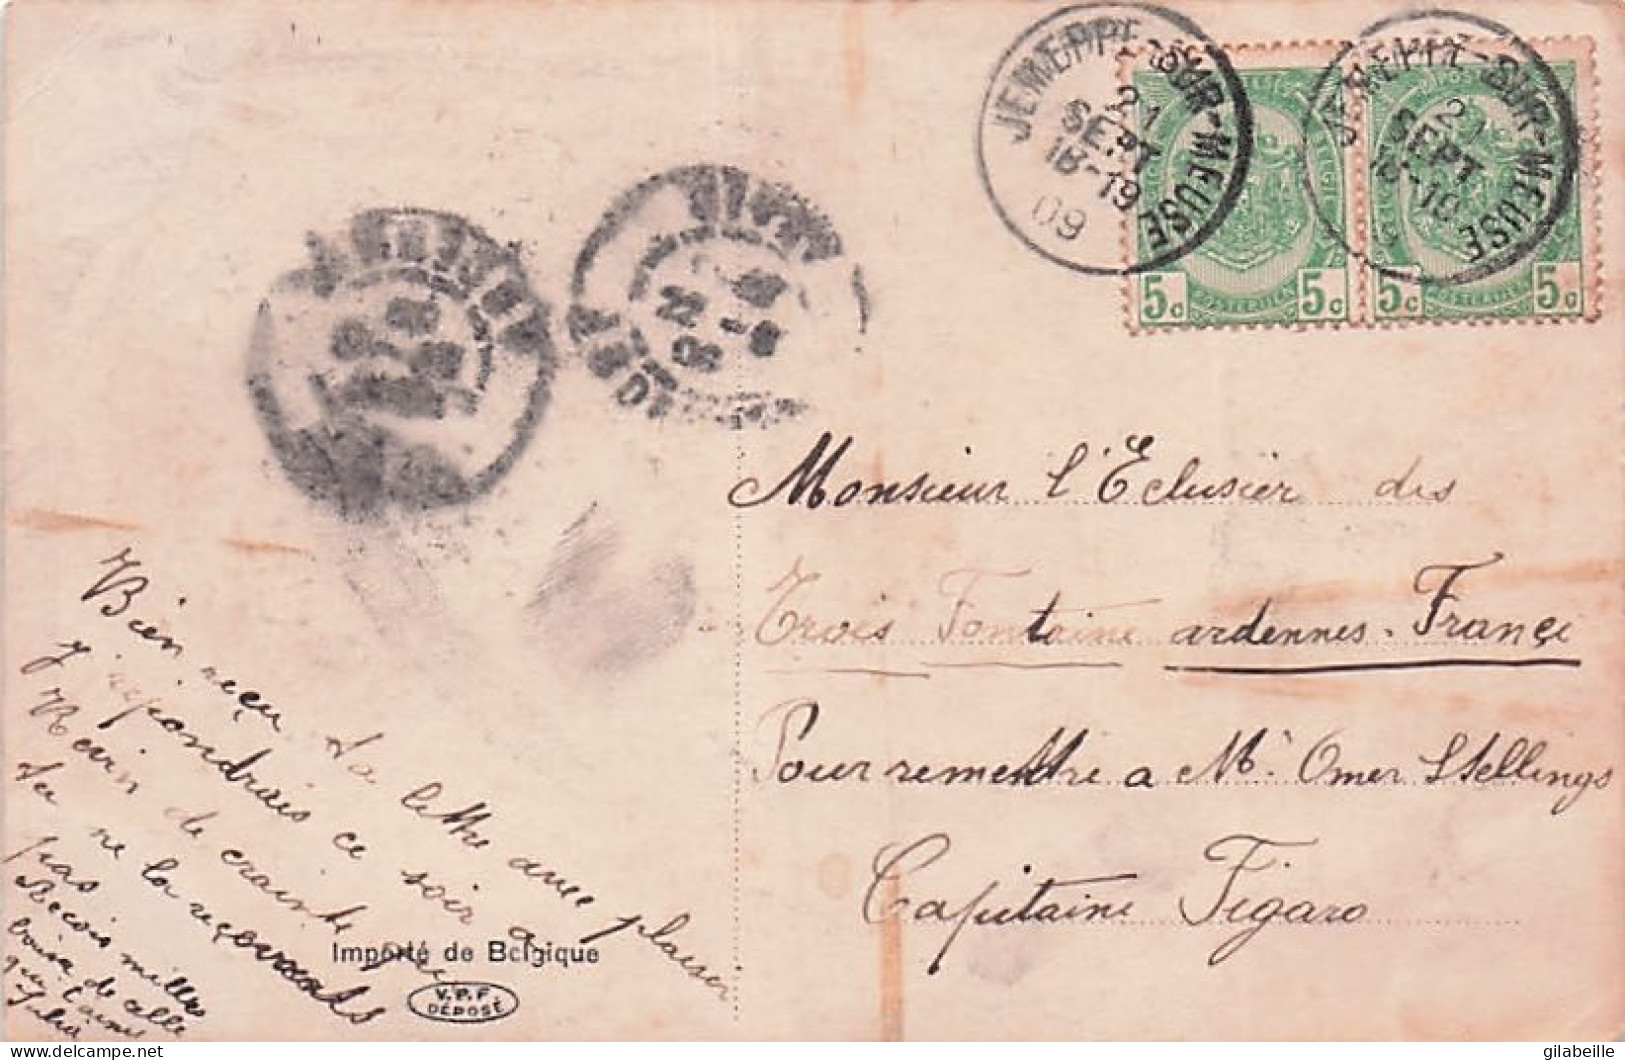 JEMEPPE-SUR-MEUSE
21
SEPT
18-19
09
JEMEPPE-SUR-MEUSE
21
SEPT
18-19
5c 5c
5c 5c
Monsieur l'Eclusier des
Trois Fontaine ardennes. France
Pour remettre a Mr Omer Stellings
Capitaine Figaro
Bien reçu ta lettre avec plaisir
j'repondrais ce soir a
Revin de crainte que
tu ne la reçevrais
pas
Recois milles
baise de celle
qui t'aime
Julia
Importé de Belgique
V.P.F.
DÉPOSÉ
gilabeille